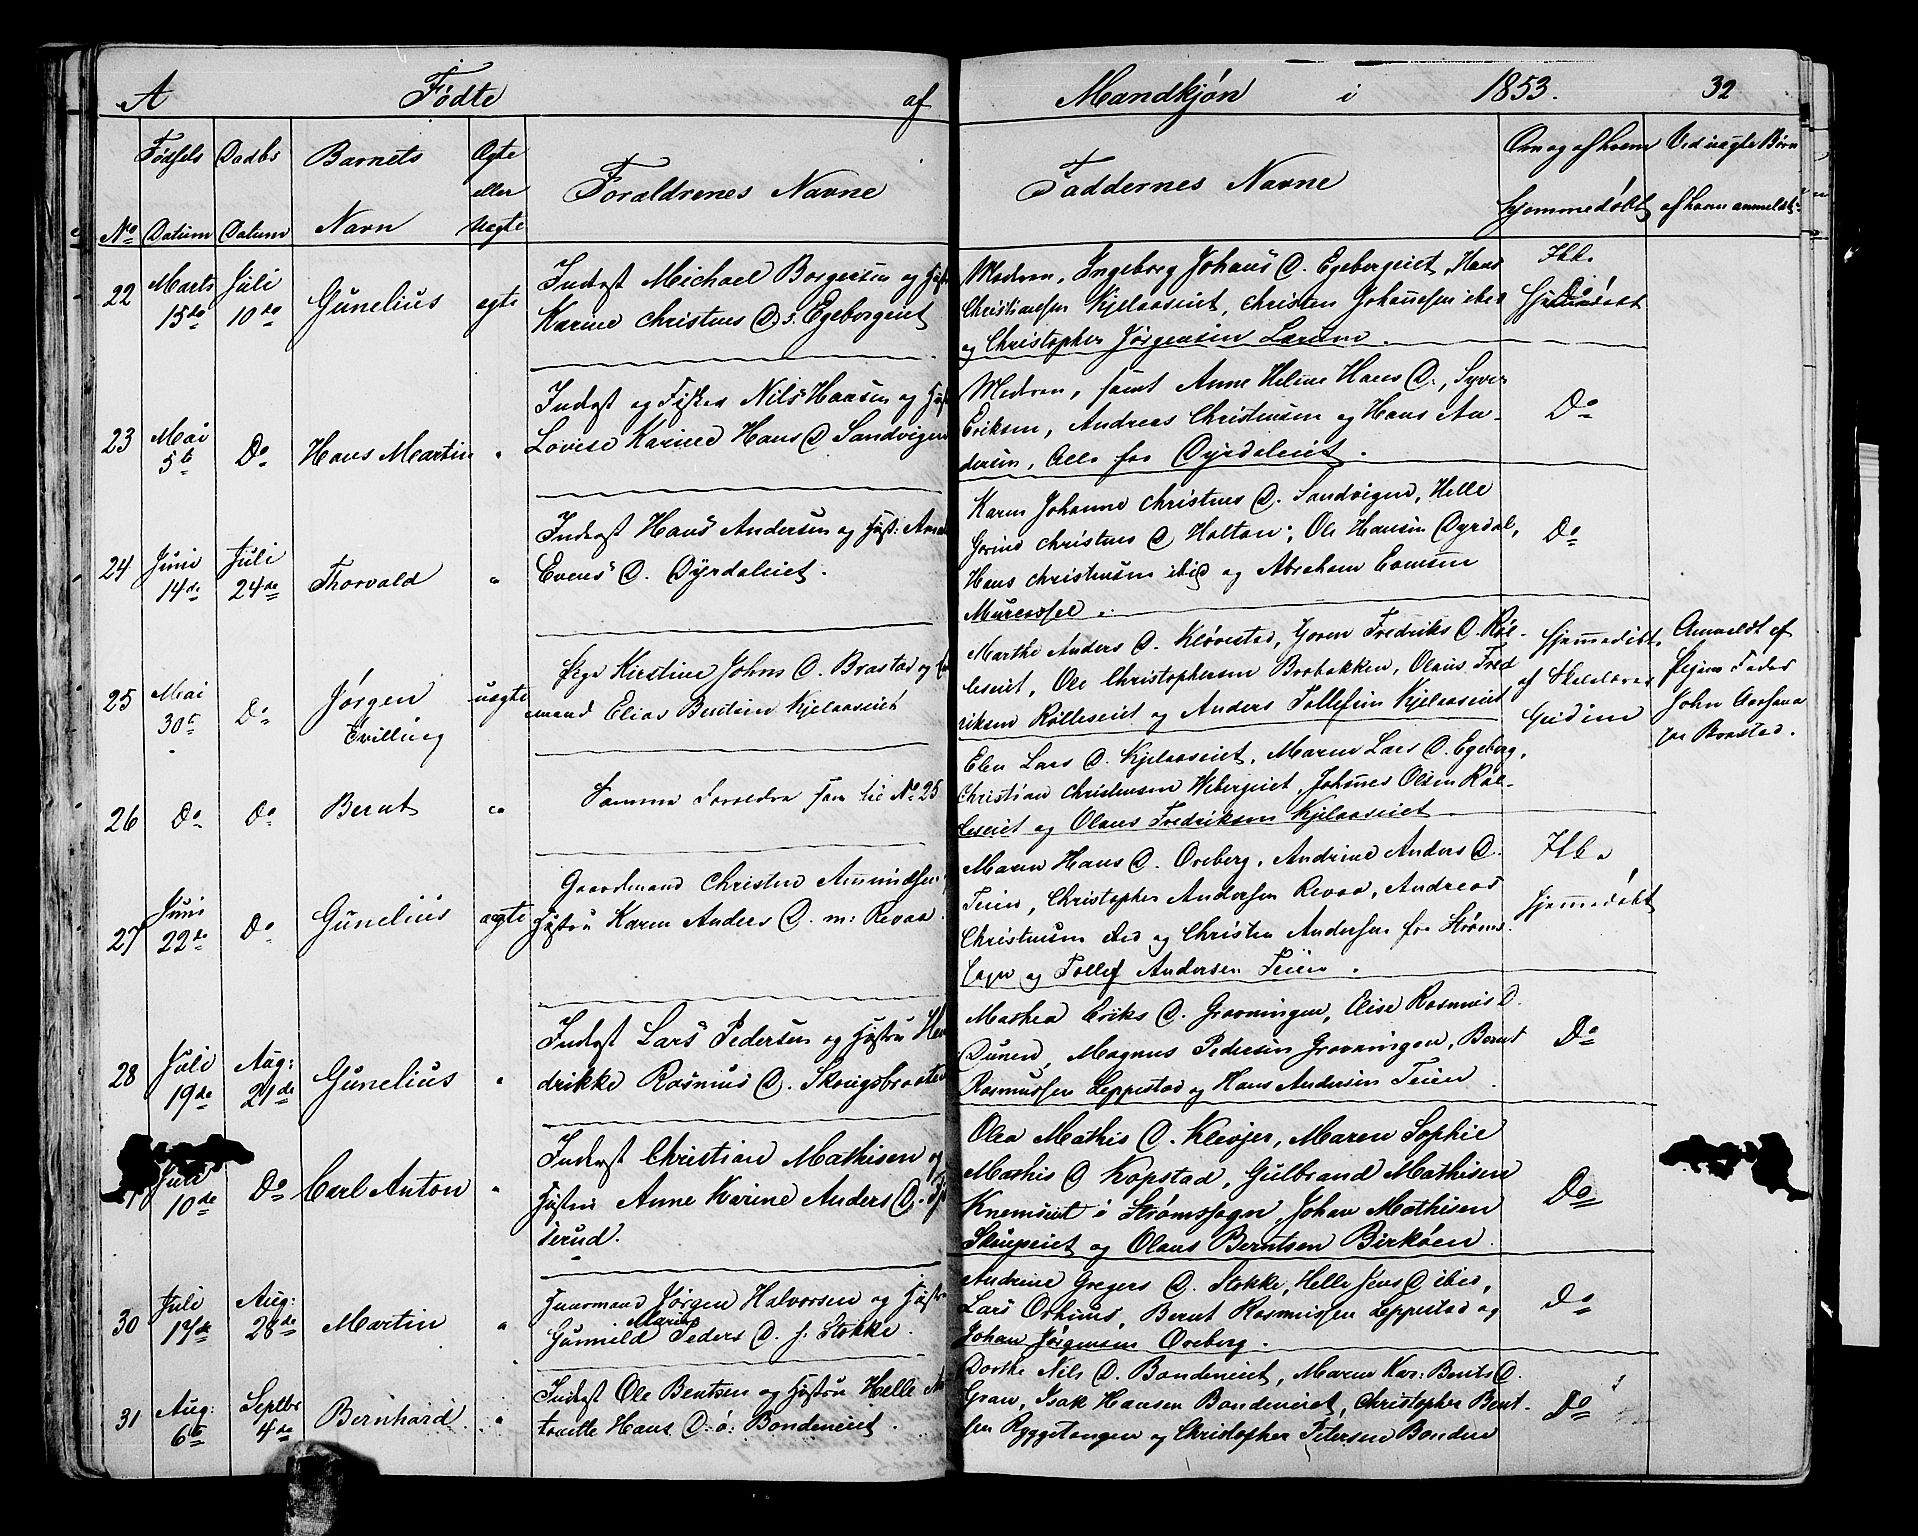 A Fødte af Mandkjøn i 1853. 32
No Fødsels Datum Daabs Datum Barnets Navn Ægte eller Uægte Forældrenes Navne Faddernes Navne Om og af hvem hjemmedøbt Ved uægte Børn af hvem anmeldt
22 Marts 15de Juli 10de Gunelius ægte
Inderst Michael Borgersen og
Karine Christens D. f. Egebergeiet
Medren, Ingeborg Johans D. Egebergeiet, Hans
Christiansen Kjelaaseiet, Christen Johannesen ibid
og Christopher Jørgensen Lærum.
Hbl. Do
Hjemmedøbt
23 Mai 5te Do Hans Martin "
Inderst og Fisker Nils Hansen og
Lovise Karine Hans D Sandvigen
Medren, samt Anne Helene Hans D., Syver
Eriksen, Andreas Christensen og Hans An-
dersen, Alle fra Dyrdaleiet.
Do
24 Juni 14de Juli 24de Thorvald "
Inderst Hans Andersen og Hust: Anne
Evens D. Dyrdaleiet.
Karen Johanne Christens D. Sandvigen, Helle
Gorine Christens D Holtan; Ole Hansen Dyrdal,
Hans Christensen ibid og Abraham
Do
25 Mai 30te Do Jørgen Tvilling uægte
Pige Kirstine Johns D. Brastad og
mand Elias Bentsen Kjelaaseiet
Marthe Anders D. Kløvestad, Goren Fredriks D. Røl-
leseiet, Ole Christophersen Brobakken, Olaus Fred
riksen Rølleseiet og Anders Tollefsen Kjelaaseiet
Hjemmedøbt
af Skolelærer
Anmeldt af
Pigens Fader
John
Brastad.
26 Do Do Bernt "
Samme Forældre som til No 25
Elen Lars D. Kjelaaseiet, Maren Lars D. Egeberg,
Christian Christensen Wibergeiet, Johannes Olsen Røl-
leseiet og Olaus Fredriksen Kjelaaseiet
27 Juni 22de Do Gunelius ægte
Gaardmand Christen Amundsen
Hustru Karen Anders D. m: Revaa.
Maren Hans D. Oreberg, Andrine Anders D.
Teien, Christopher Andersen Revaa, Andreas
Christensen ibid og Christen Andersen fra Strøms-
sogn og Tollef Andersen Teien.
Hbl.
Hjemmedøbt
28 Juli 19de Aug: 21de Gunelius "
Inderst Lars Pedersen og Hustru Hen
drikke Rasmus D. Skougsbraaten
Mathea Eriks D. Gravningen, Elise Rasmus D.
Dunen, Magnus Pedersen Gravningen, Bernt
Rasmussen Leppestad og Hans Andersen Teien.
Do
Juli 10de Do Carl Anton "
Inderst Christian Mathisen og
Hustru Anne Karine Anders D.
serud.
Olea Mathis D. Klevjer, Maren Sophie
Mathis D Kopstad, Gulbrand Mathisen
Knemseiet i Strømssogn, Johan Mathisen
Skuepeiet og Olaus Berntsen Birkøen.
Do
30 Juli 17de Aug: 28de Martin "
Huusmand Jørgen Halvorsen og Hustru
Gunnild Marie Peders D. f. Stokke.
Andrine Gregers D. Stokke, Helle Jens D ibid,
Lars Orhuus, Bernt Rasmussen Leppestad og
Johan Jørgensen Oreberg.
Do
31 Aug: 6te Septbr 4de Bernhard. "
Inderst Ole Bentsen og Hustru Helle An
tonette Hans D. ø: Bondeneiet.
Dorthe Nils D. Bondeneiet, Maren Kar: Bents D.
Gran, Isak Hansen Bondeneiet, Christopher Bent-
sen Ryggetangen og Christopher Petersen Bonden
Do